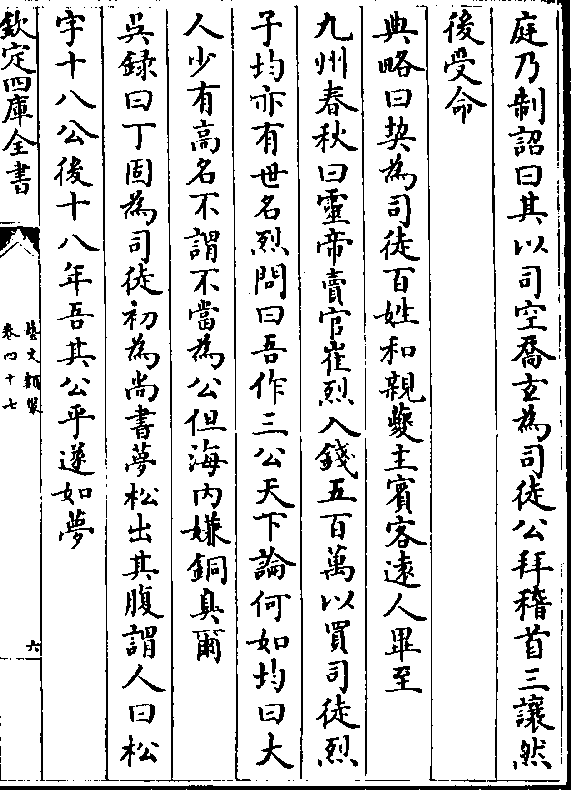 庭乃制詔曰其以司空喬𤣥為司徒公拜稽首三讓然
後受命
典略曰契為司徒百姓和親夔主賔客逺人畢至
九州春秋曰靈帝賣官崔烈入錢五百萬以買司徒烈
子均亦有世名烈問曰吾作三公天下論何如均曰大
人少有高名不謂不當為公但海内嫌銅臭爾
吳録曰丁固為司徒初為尚書夢松出其腹謂人曰松
字十八公後十八年吾其公乎遂如夢
欽定四庫全書
藝文類聚
卷四十七
六